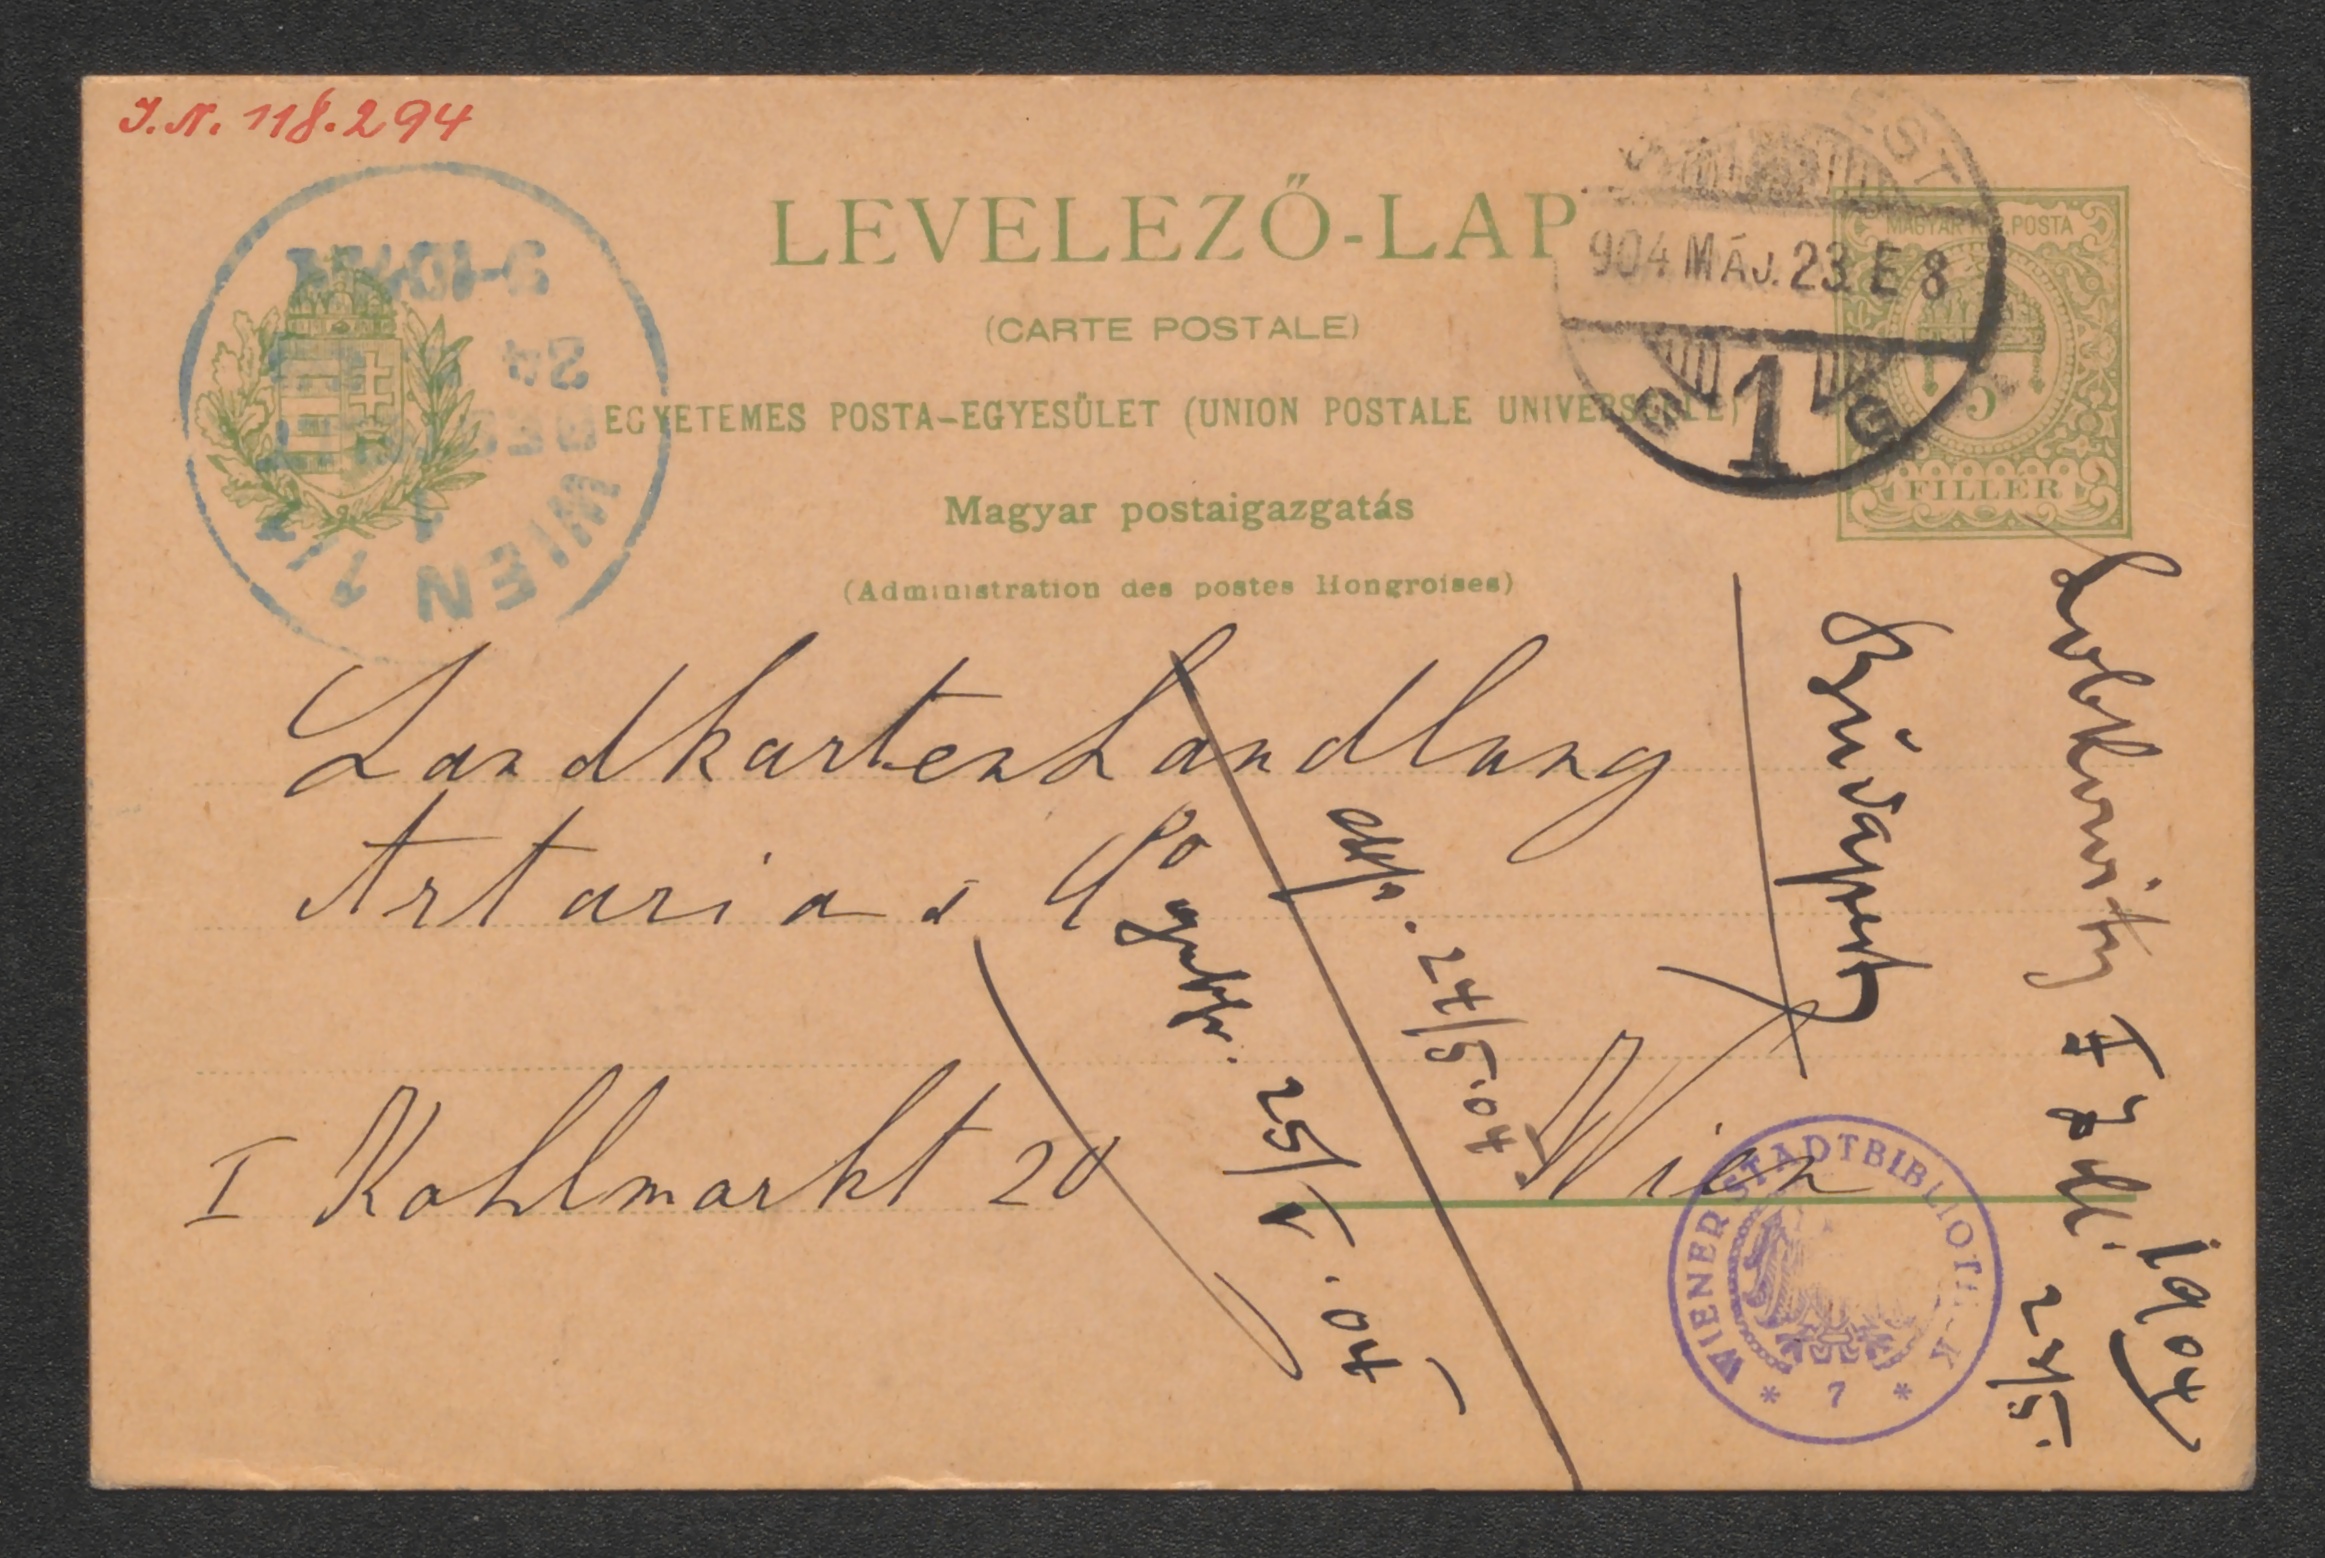 J.N. 118.294
LEVELEZŐ-LAP
(CARTE POSTALE)
EGYETEMES POSTA-EGYESÜLET (UNION POSTALE UNIVERSELLE)
Magyar postaigazgatás
(Administration des postes Hongroises)
904 MÁJ. 23. E 8
1
MAGYAR KIR. POSTA
5
FILLER
WIEN 1/1
24
Landkartenhandlung
Artaria & Co
I Kohlmarkt 20
Wien
exp. 24/5.04
25/V.04
Budapest
Lobkowitz
1904
23/5.
WIENER STADTBIBLIOTHEK
* 7 *